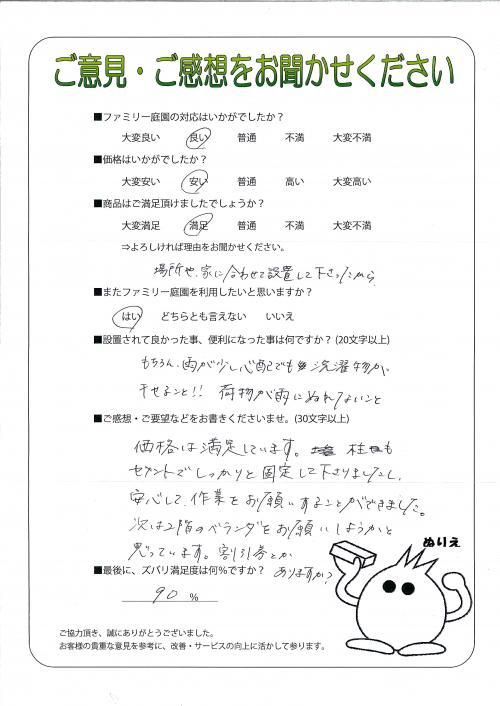 ご意見・ご感想をお聞かせください
■ファミリー庭園の対応はいかがでしたか？
大変良い 良い 普通 不満 大変不満
■価格はいかがでしたか？
大変安い 安い 普通 高い 大変高い
■商品はご満足頂けましたでしょうか？
大変満足 満足 普通 不満 大変不満
⇒よろしければ理由をお聞かせください。
場所や、家に合わせて設置して下さったから
■またファミリー庭園を利用したいと思いますか？
はい どちらとも言えない いいえ
■設置されて良かった事、便利になった事は何ですか？(20文字以上)
もちろん、雨が少し心配でも洗濯物が、
干せること!! 荷物が雨にぬれてないこと
■ご感想・ご要望などをお書きくださいませ。(30文字以上)
価格は満足しています。 柱も
セメントでしっかりと固定して下さりましたし、
安心して、作業をお願いすることができました。
次は2階のベランダをお願いしようかと
思っています。割引券とか
ありますか？
■最後に、ズバリ満足度は何％ですか？
90 %
ぬりえ
ご協力頂き、誠にありがとうございました。
お客様の貴重な意見を参考に、改善・サービスの向上に活かして参ります。